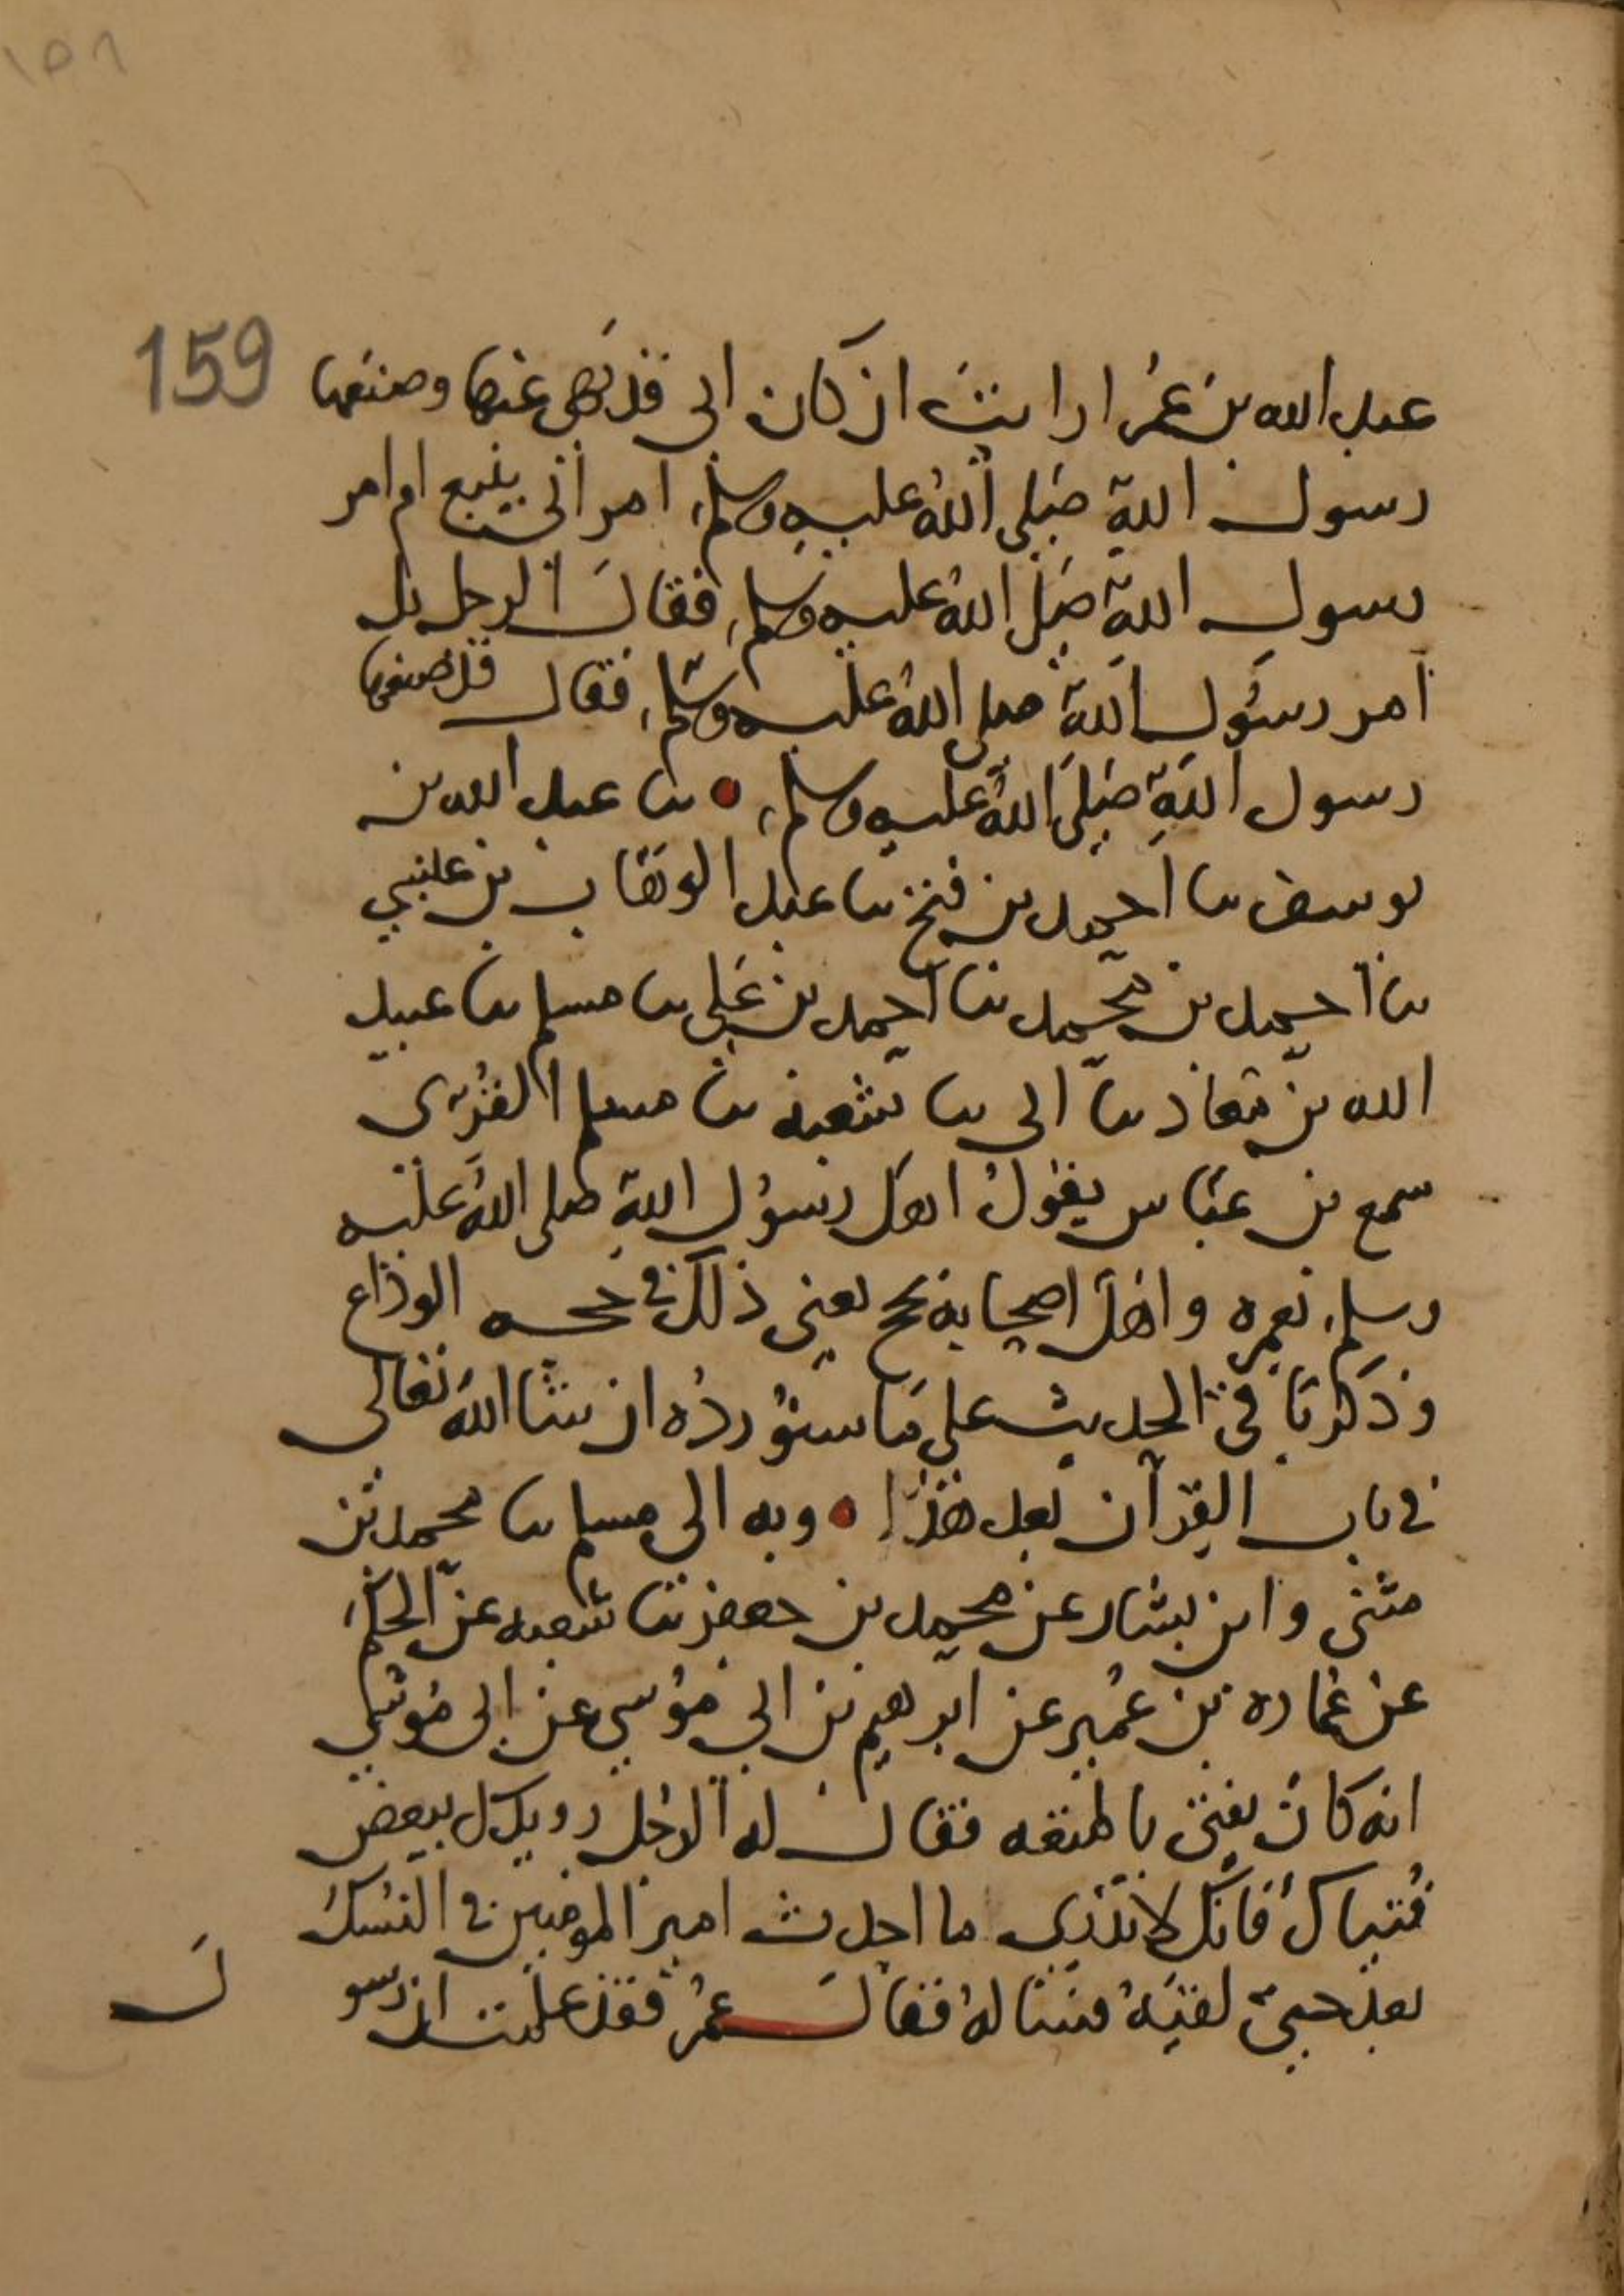 ١٥٨
159
عبد الله بن عمر ارايت ان كان ابي قد نهى عنها وصنعها
رسول الله صلى الله عليه وسلم امر ابي يتبع ام امر
رسول الله صلى الله عليه وسلم فقال الرجل بل
امر رسول الله صلى الله عليه وسلم فقال قد صنعها
رسول الله صلى الله عليه وسلم ● نا عبد الله بن
يوسف نا احمد بن فتح نا عبد الوهاب بن عيسى
نا احمد بن محمد نا احمد بن علي نا مسلم نا عبيد
الله بن معاذ نا ابي نا شعبة نا مسلم القري
سمع بن عباس يقول اهل رسول الله صلى الله عليه
وسلم بعمره واهل اصحابه بحج يعني ذلك في حجه الوداع
وذكر باقي الحديث على ما سنورده ان شا الله تعالى
في باب القران بعد هذا ● وبه الى مسلم نا محمد بن
مثنى وابن بشار عن محمد بن جعفر نا شعبه عن الحكم
عن عماره بن عمير عن ابرهيم بن ابي موسى عن ابي موسى
انه كان يفتي بالمتعه فقال له الرجل رويدك ببعض
فتياك فانك لا تدري ما احدث امير المومنين في النسك
بعد حتى لقيه فساله فقال عمر فقد علمت ان رسو
ل